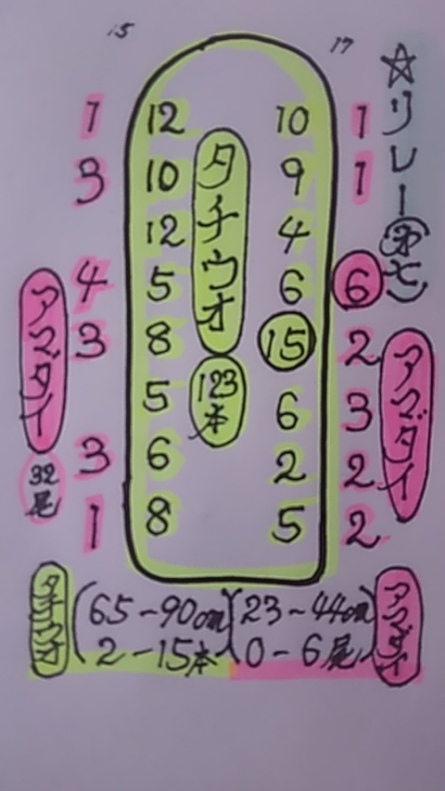 15 17
☆リレー
1 12 10 1
3 10 9 1
12 4
4 5 6 6
3 8 15 2
5 6 3
3 6 2 2
1 8 5 2
タチウオ
123本
アマダイ
32尾
アマダイ
タチウオ
(65-90cm)(23~44cm)
2-15本 0-6尾
アマダイ